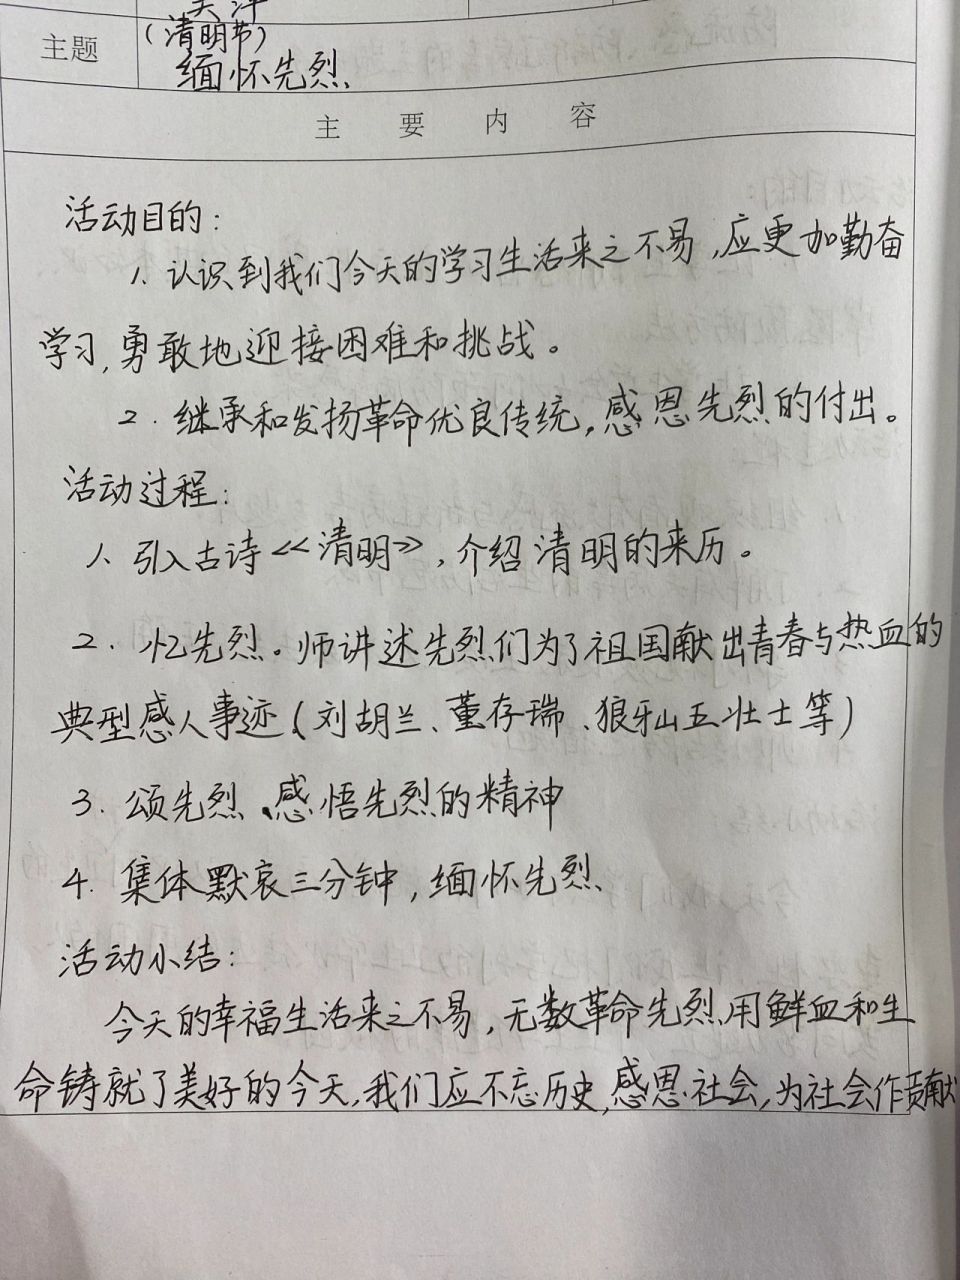 主题
(清明节)
缅怀先烈、
主要内容
活动目的:
1. 认识到我们今天的学习生活来之不易,应更加勤奋
学习,勇敢地迎接困难和挑战。
2. 继承和发扬革命优良传统,感恩先烈的付出。
活动过程:
1. 引入古诗《清明》,介绍清明的来历。
2. 忆先烈。师讲述先烈们为了祖国献出青春与热血的
典型感人事迹(刘胡兰、董存瑞、狼牙山五壮士等)
3. 颂先烈、感悟先烈的精神
4. 集体默哀三分钟,缅怀先烈、
活动小结:
今天的幸福生活来之不易,无数革命先烈、用鲜血和生
命铸就了美好的今天,我们应不忘历史,感恩社会,为社会作贡献